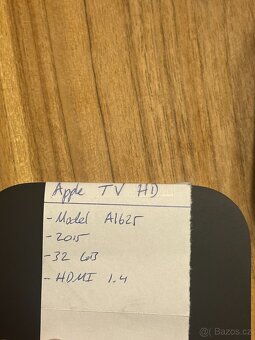 Apple TV HD
- Model A1625
- 2015
- 32 GB
- HDMI 1.4
Bazos.cz